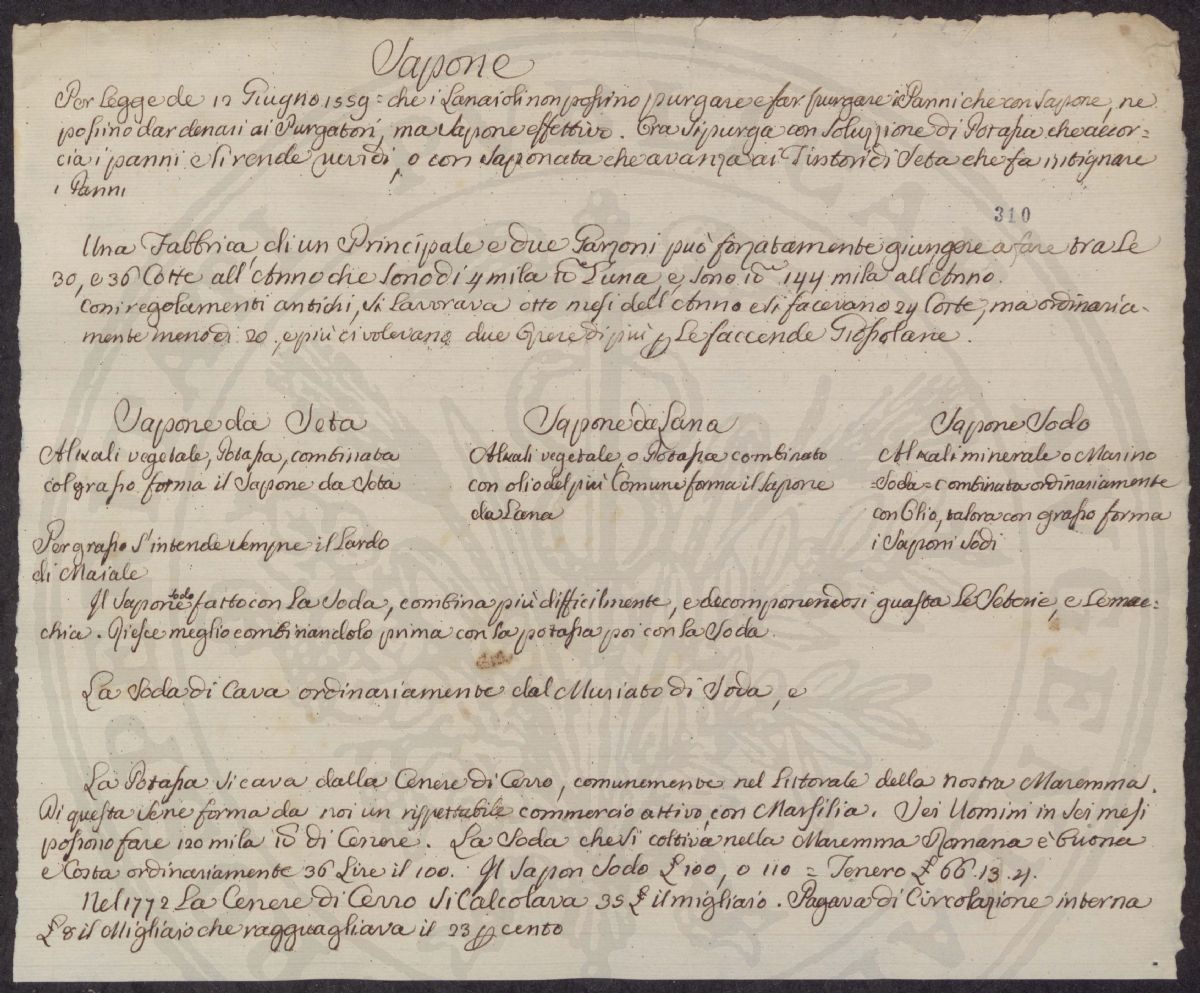 Sapone
Per Legge de 12 Giugno 1559 = che i Lanaioli non possino purgare e far purgare i Panni che con sapone, ne
possino dar denari ai Purgatori, ma sapone effettivo. Ora si purga con soluzzione di Potassa che accor=
cia i panni e li rende ruvidi, o con saponata che avanza ai Tintori di Seta che fa intignare
i Panni
310
Una Fabbrica di un Principale e due Garzoni può forzatamente giungere a fare tra Le
30, e 36 Cotte all'Anno che sono di 4 mila lb Luna, e sono lb 144 mila all'Anno.
con i regolamenti antichi, si Lavorava otto mesi dell'Anno e si facevano 24 Cotte, ma ordinaria-
mente meno di 20, e più ci volevano due Opere di più p Le faccende Giossolane.
Sapone da Seta
Alkali vegetale, Potassa, combinata
col grasso forma il Sapone da Seta
Per grasso s'intende sempre il Lardo
di Maiale
Sapone da Lana
Alkali vegetale o Potassa combinato
con olio del più Comune forma il Sapone
da Lana
Sapone Sodo
Alkali minerale o Marino
=Soda= combinata ordinariamente
con Olio, talora con grasso forma
i Saponi Sodi
Il Sapone sodo fatto con La Soda, combina più difficilmente, e decomponendosi guasta Le Seterie, e Le mac=
chia. Riesce meglio combinandolo prima con La potassa poi con La Soda.
La Soda di Cava ordinariamente dal Muriato di Soda, e
La Potassa si cava dalla Cenere di Cerro, comunemente nel Littorale della nostra Maremma.
Di questa se ne forma da noi un rispettabile commercio attivo con Marsilia. Sei Uomini in sei mesi
possono fare 120 mila lb di Cenere. La Soda che si coltiva nella Maremma Romana è buona
e Costa ordinariamente 36 Lire il 100. Il Sapon Sodo £ 100, o 110 = Tenero £ 66.13.4.
Nel 1772 La Cenere di Cerro si Calcolava 35 £ il migliaio. Pagava di Circolazione interna
£ 8 il Migliaio che ragguagliava il 23 p cento